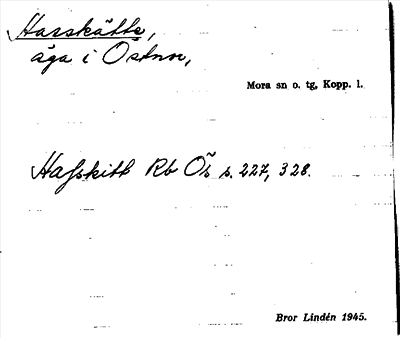 Harskätte,
äga i Östnor,
Mora sn o. tg, Kopp. l.
Hafskitt Rb Ös s. 227, 328.
Bror Lindén 1945.